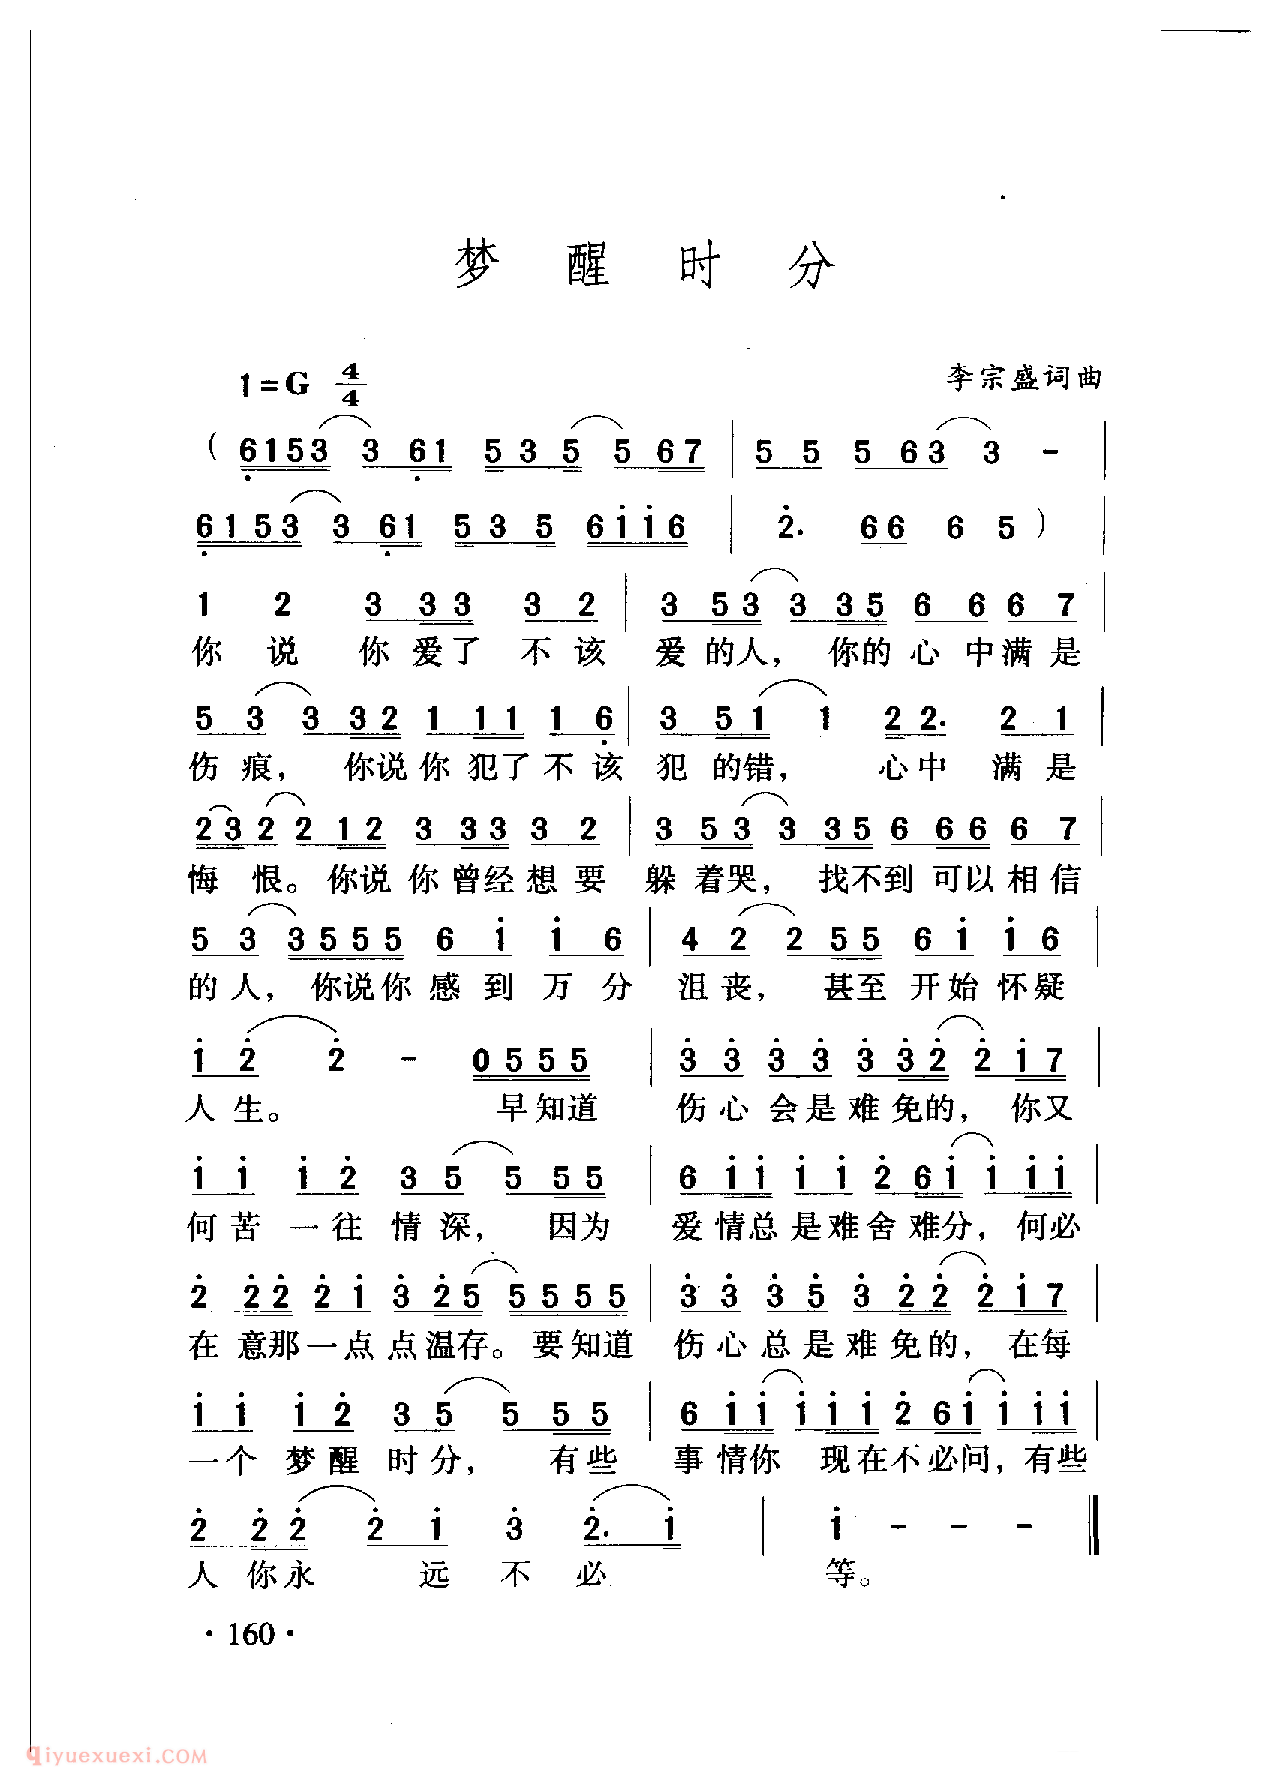 梦醒时分
1=G 4/4 李宗盛词曲
( 6 1 5 3 3 6 1 5 3 5 5 6 7 | 5 5 5 6 3 3 - |
6 1 5 3 3 6 1 5 3 5 6 i i 6 | 2̇. 6 6 6 5 )
1 2 3 3 3 3 2 | 3 5 3 3 3 5 6 6 6 7 |
你说你爱了不该爱的人，你的心中满是
5 3 3 3 2 1 1 1 1 6 | 3 5 1 1 2 2. 2 1 |
伤痕，你说你犯了不该犯的错，心中满是
2 3 2 2 1 2 3 3 3 3 2 | 3 5 3 3 3 5 6 6 6 6 7 |
悔恨。你说你曾经想要躲着哭，找不到可以相信
5 3 3 5 5 5 6 i i 6 | 4 2 2 5 5 6 i i 6 |
的人，你说你感到万分沮丧，甚至开始怀疑
i 2̇ 2̇ - 0 5 5 5 | 3̇ 3̇ 3̇ 3̇ 3̇ 3̇ 2̇ 2̇ i 7 |
人生。早知道伤心会是难免的，你又
i i i 2̇ 3 5 5 5 5 | 6 i i i i 2̇ 6 i i i i |
何苦一往情深，因为爱情总是难舍难分，何必
2̇ 2̇ 2̇ 2̇ i 3̇ 2̇ 5 5 5 5 5 | 3̇ 3̇ 3̇ 5̇ 3̇ 2̇ 2̇ 2̇ i 7 |
在意那一点点温存。要知道伤心总是难免的，在每
i i i 2̇ 3 5 5 5 5 | 6 i i i i i 2̇ 6 i i i i |
一个梦醒时分，有些事情你现在不必问，有些
2̇ 2̇ 2̇ 2̇ i 3 2̇. i | i - - -
人你永远不必等。
·160·
qiyuexuexi.COM